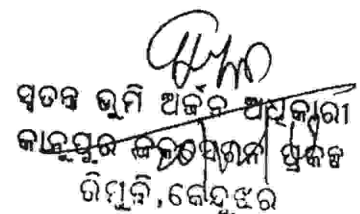 ସ୍ବତନ୍ତ୍ର ଭୂମି ଅର୍ଜନ ଅଧିକାରୀ
କାନୁପୁର ଜଳସେଚନ ପ୍ରକଳ୍ପ
ରିମୁଳି, କେନ୍ଦୁଝର